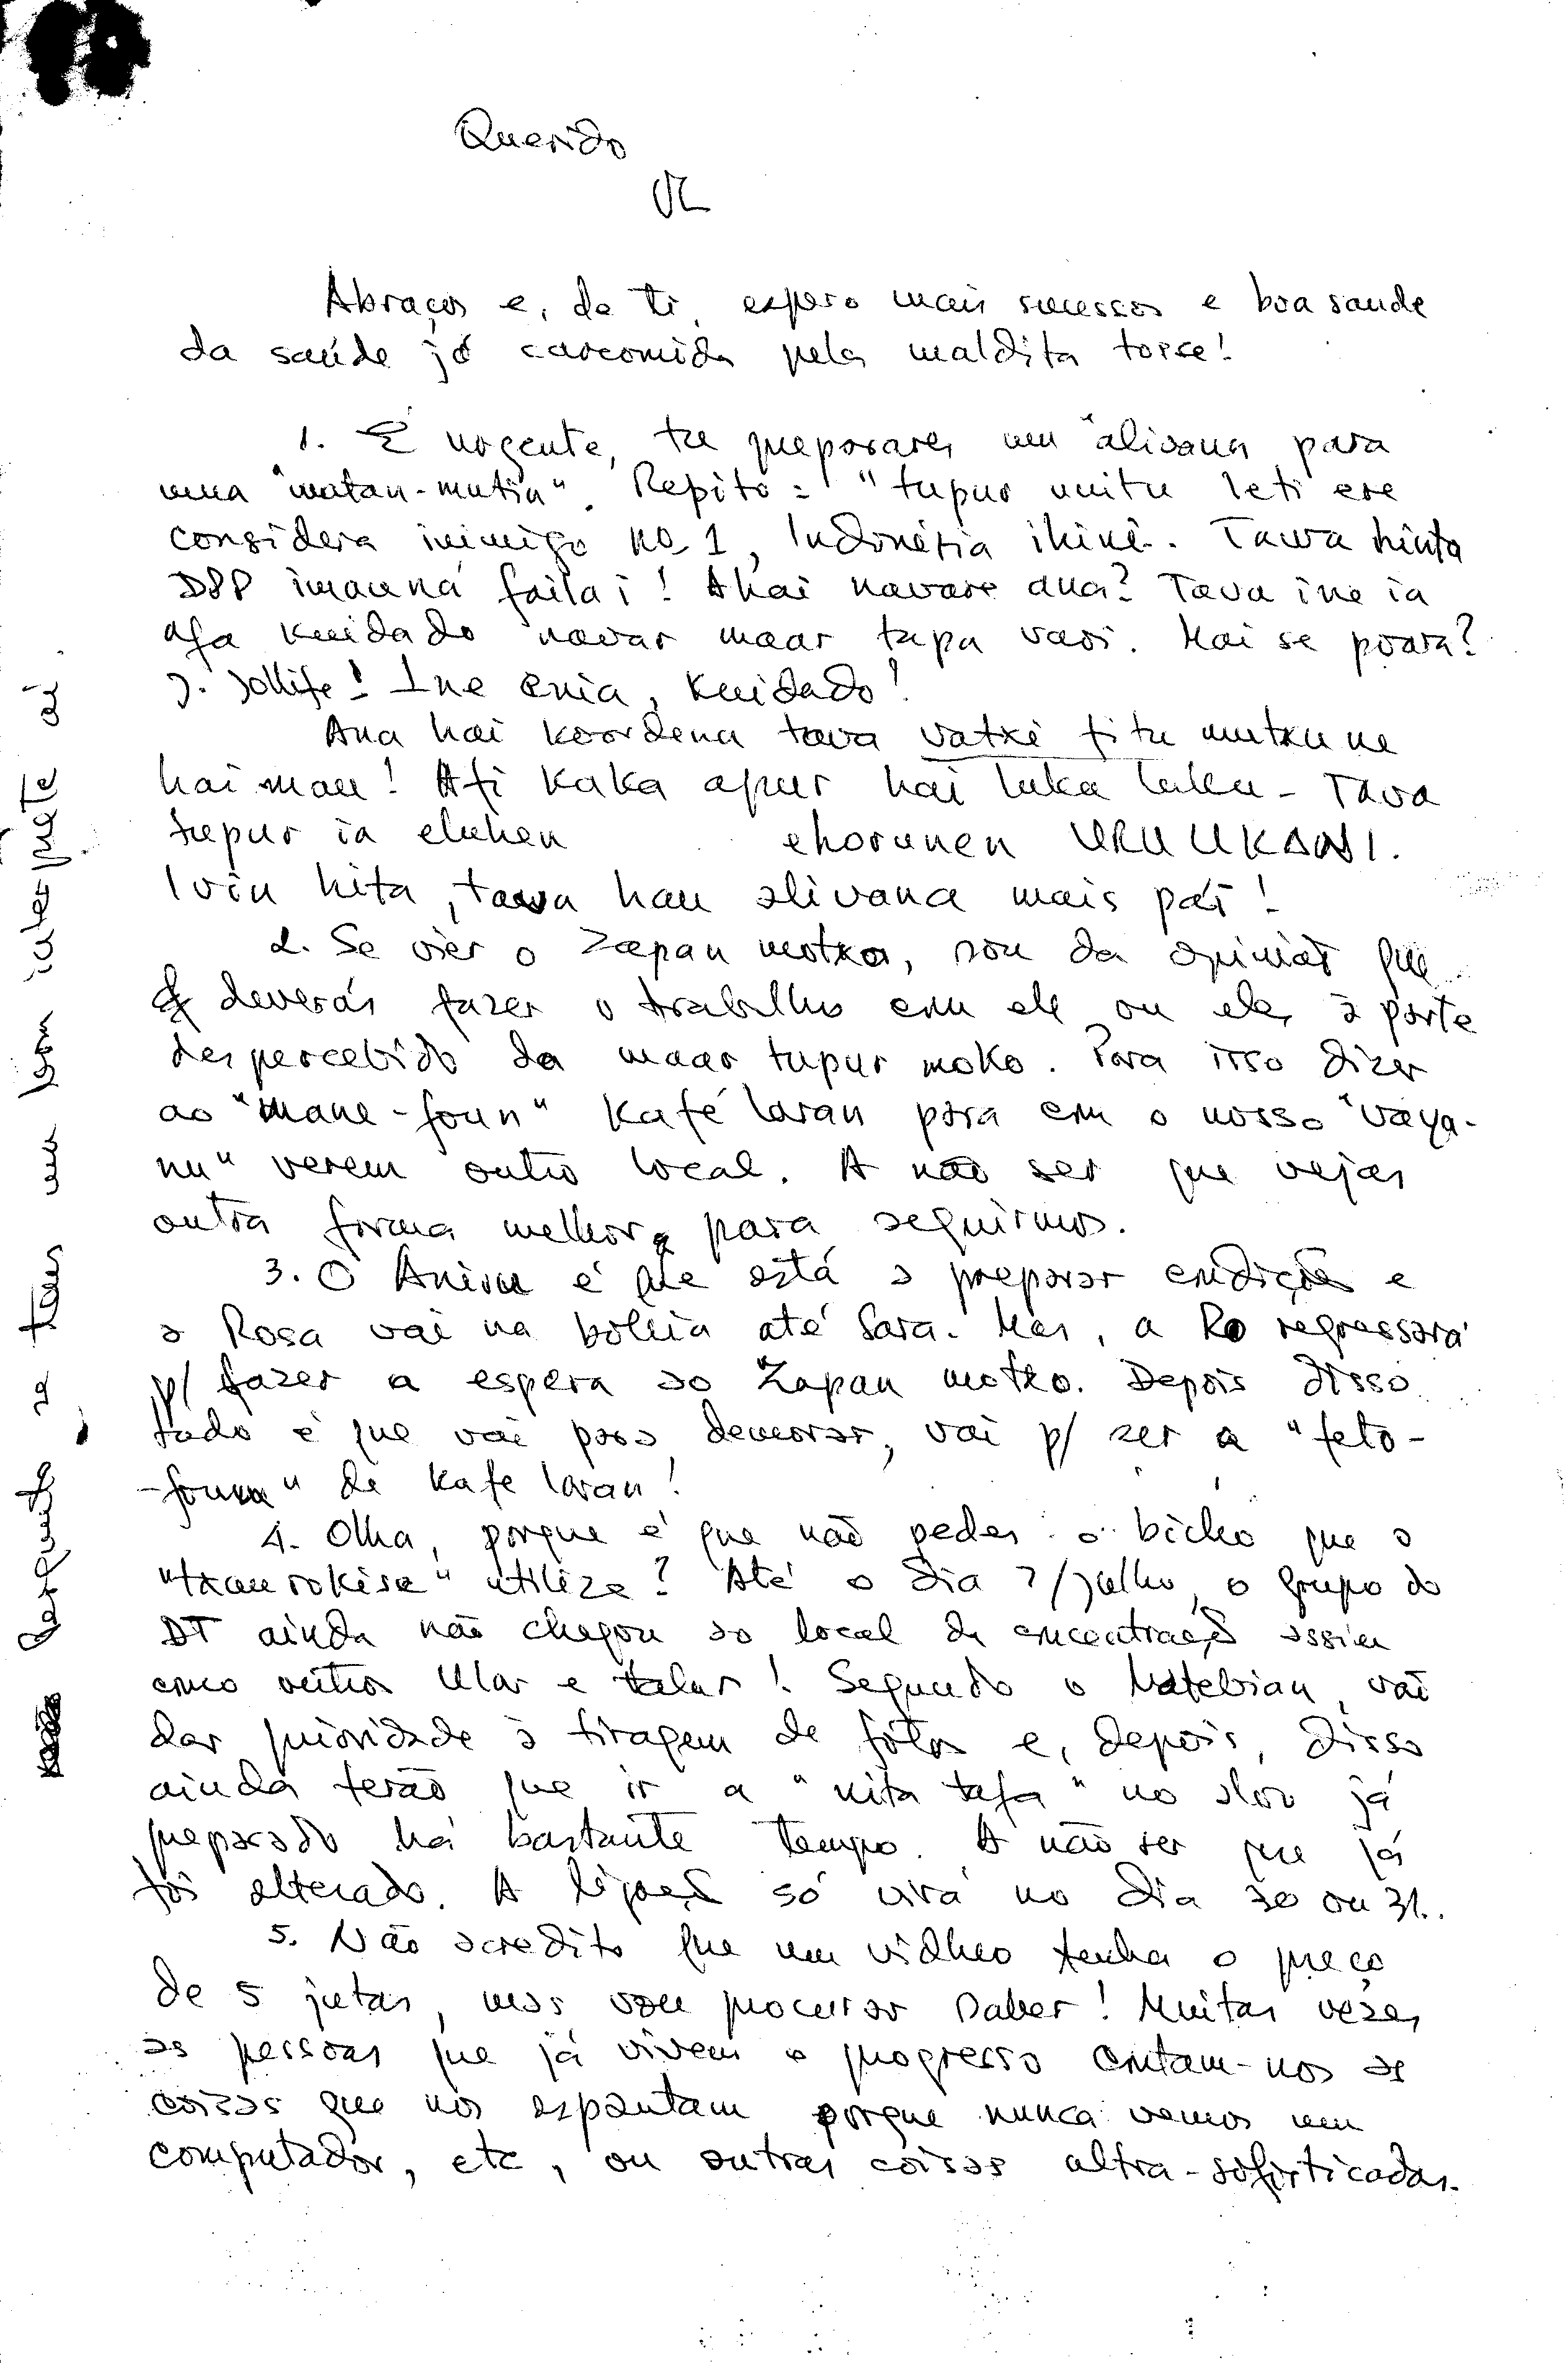 Querido
VL
Abraços e, de ti, espero mais sucessos e boa saude
da saúde já carcomida pela maldita tosse!
1. É urgente, tu preparares um "alivana para
uma "matan-mutin". Repito: "tupur unitu leti ere
considera inimigo no 1, Indonésia ihine. Tawa hinta
DPP imauna failai! Ahai navare ana? Tava ine ia
afa kuidado navar maar tapa vari. Hai se poara?
J. Jollife! Ine enia, kuidado!
Ana hai koordena tava vatxé fitu mutxune
hai mau! Afi kaka apur hai luka luku - Tava
tupur ia eluhen ehorunen URU UKANI.
Ivin hita, tawa hau alivana mais pái!
2. Se vier o Zapan motxo, sou da opinião que
deverás fazer o trabalho com ele ou eles à parte
despercebido da maar tupur moko. Para isso dizer
ao "mane-foun" Kafé laran para com o nosso "vaya-
nu" verem outro local. A não ser que vejas
outra forma melhor para seguirmos.
3. O Anivu é que está a preparar condições e
a Rosa vai na boleia até Sara. Mas, a Ro regressará
p/ fazer a espera ao Zapan motxo. Depois disso
tudo é que vai para demorar, vai p/ ser a "feto-
-foun" de Kafe laran!
4. Olha, porque é que não pedes o bicho que o
"txaurokise" utiliza? Até o dia 7/julho, o grupo do
DT ainda não chegou ao local da concentração assim
como outros Ular e talur! Segundo o Matebian, vai
dar prioridade à tiragem de fotos e, depois, disso
ainda terão que ir a "kita tafa" no alvo já
preparado há bastante tempo. A não ser que já
foi alterado. A ligação só virá no dia 30 ou 31..
5. Não acredito que um vídheo tenha o preço
de 5 jutas, mas vou procurar saber! Muitas vezes
as pessoas que já vivem o progresso contam-nos as
coisas que nos espantam porque nunca vemos um
computador, etc, ou outras coisas altra-sofisticadas.
Daqui a tua um bom aí.